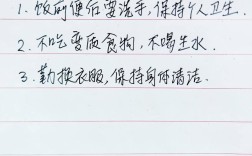 1. 饭前便后要洗手,保持个人卫生.
2. 不吃变质食物,不喝生水.
3. 勤换衣服,保持身体清洁.